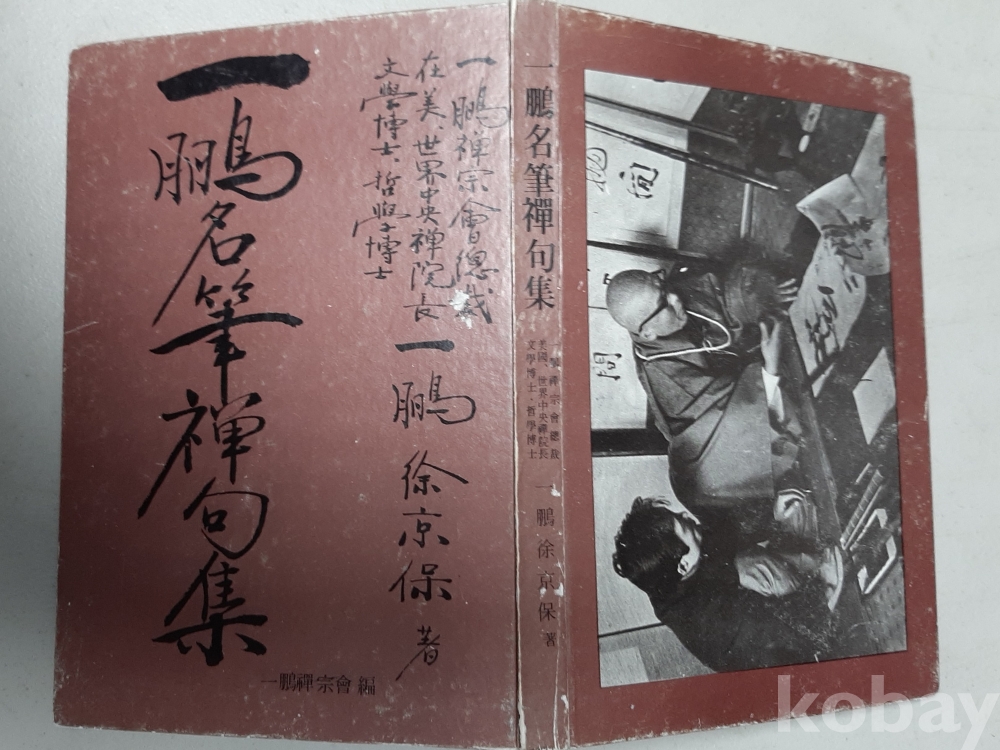 一鵬名筆禪句集
一鵬禅宗會總裁
在美、世界中央禅院長
文學博士、哲學博士
一鵬 徐京保 著
一鵬禪宗會 編
一鵬名筆禪句集
一鵬禪宗會總裁
美國、世界中央禪院長
文學博士・哲學博士
一鵬徐京保 著
問
kobay